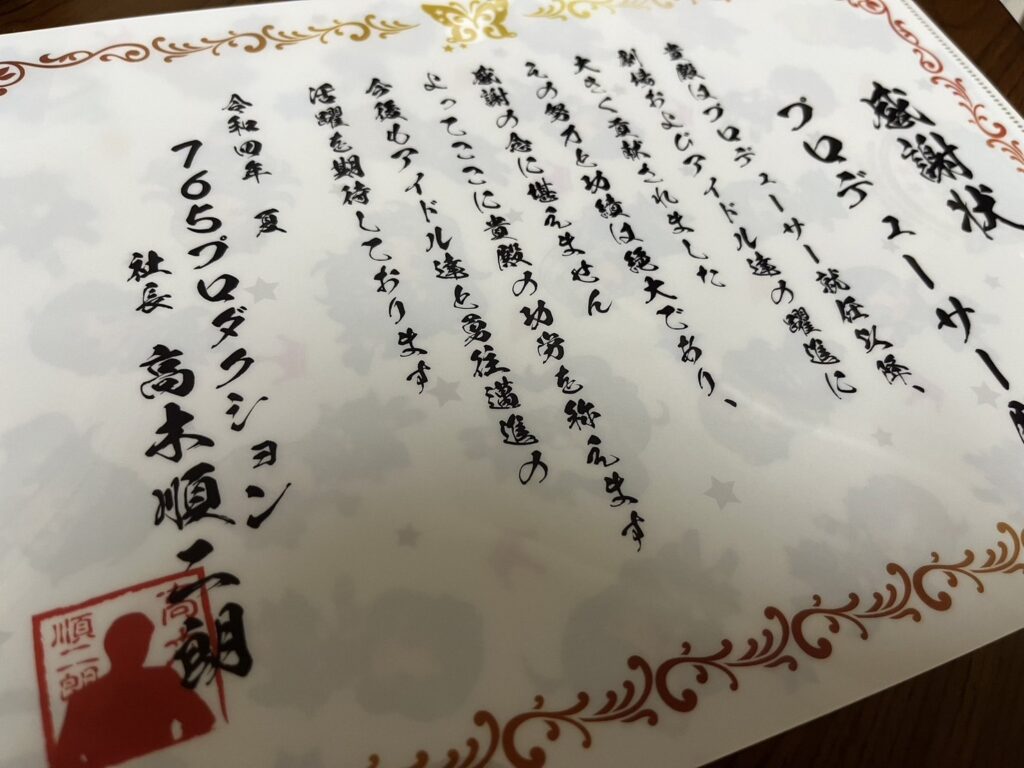 感謝状
プロデューサー殿
貴殿はプロデューサー就任以降、
劇場およびアイドル達の躍進に
大きく貢献されました
その努力と功績は絶大であり、
感謝の念に堪えません
よってここに貴殿の功労を称えます
今後もアイドル達と勇往邁進の
活躍を期待しております
令和四年 夏
765プロダクション
社長 高木順二朗
高木
順二朗